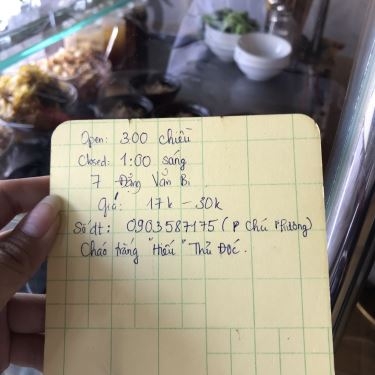 Open: 300 chiều
Closed: 1:00 sáng
7 Đặng Văn Bi
Giá: 17k - 30k
Số đt: 0903587175 (P Chú Phương)
Cháo trắng "Hiếu" Thủ Đức.